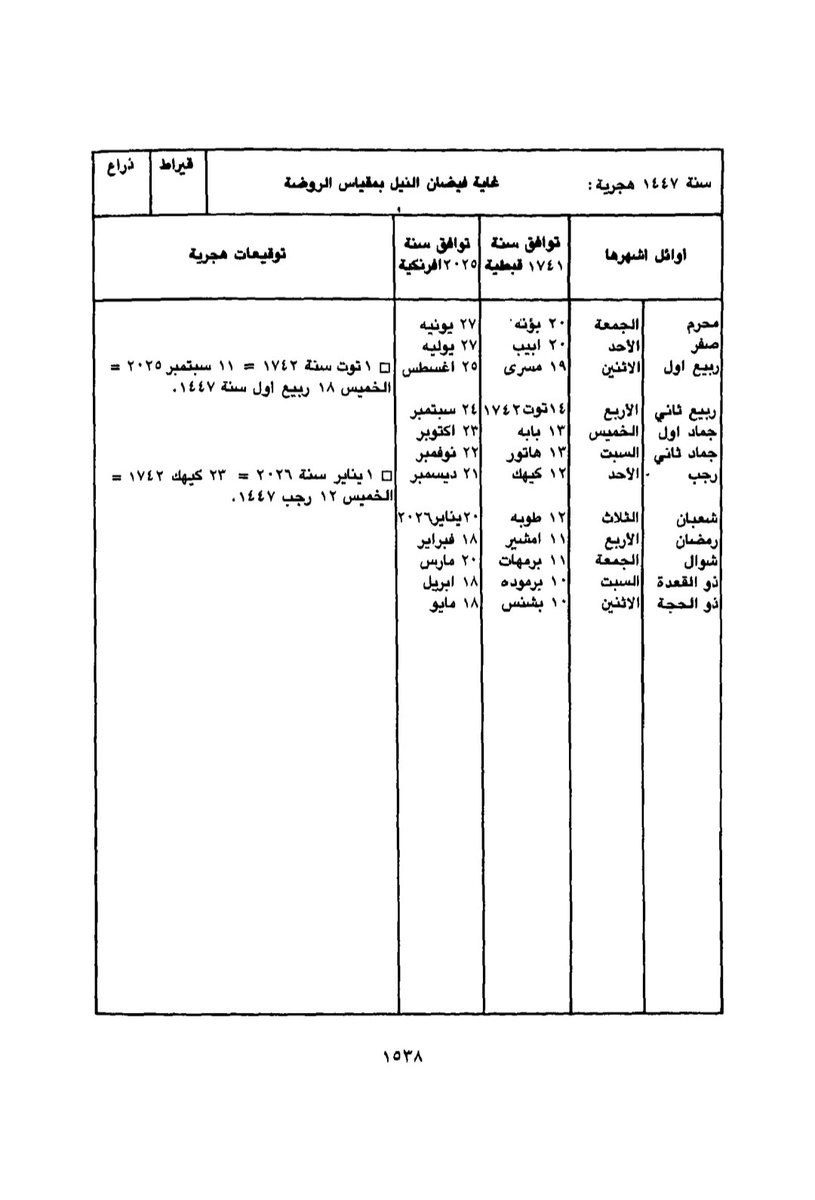 سنة ١٤٤٧ هجرية: غاية فيضان النيل بمقياس الروضة قيراط ذراع
اوائل اشهرها توافق سنة ١٧٤١ قبطية توافق سنة ٢٠٢٥ افرنكية توقيعات هجرية
محرم الجمعة ٢٠ بؤنه ٢٧ يونيه
صفر الاحد ٢٠ ابيب ٢٧ يوليه
ربيع اول الاثنين ١٩ مسرى ٢٥ اغسطس □ ١ توت سنة ١٧٤٢ = ١١ سبتمبر ٢٠٢٥ =
الخميس ١٨ ربيع اول سنة ١٤٤٧.
ربيع ثاني الأربع ١٤ توت ١٧٤٢ ٢٤ سبتمبر
جماد اول الخميس ١٣ بابه ٢٣ اكتوبر
جماد ثاني السبت ١٣ هاتور ٢٢ نوفمبر
رجب الاحد ١٢ كيهك ٢١ ديسمبر □ ١ يناير سنة ٢٠٢٦ = ٢٣ كيهك ١٧٤٢ =
الخميس ١٢ رجب ١٤٤٧.
شعبان الثلاث ١٢ طوبه ٢٠ يناير ٢٠٢٦
رمضان الأربع ١١ امشير ١٨ فبراير
شوال الجمعة ١١ برمهات ٢٠ مارس
ذو القعدة السبت ١٠ برموده ١٨ ابريل
ذو الحجة الاثنين ١٠ بشنس ١٨ مايو
١٥٣٨